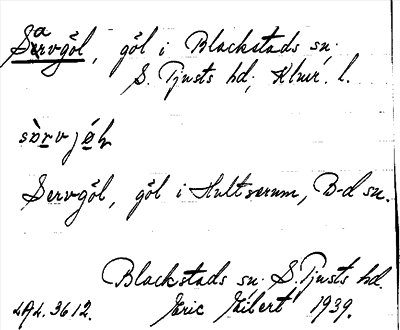 Sarvgöl, göl i Blackstads sn.
S. Tjusts hd; Klmr. l.
Servgöl, göl i Hultserum, B-d sn.
Blackstads sn. S. Tjusts hd.
Eric Eilert 1939.